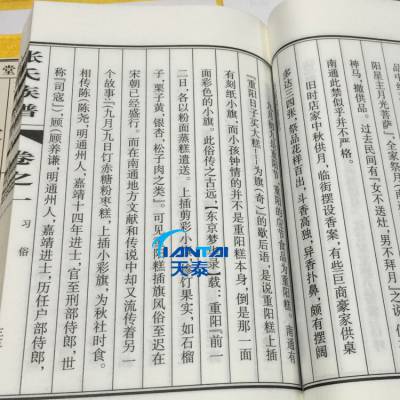 阳星主月光菩萨”,全家祭
神马,撤供品。过去民间有“女不送灶,男不拜月
南通此禁似乎并不严格。
旧时店家中秋供月,临街摆设香案,有些巨商豪家供桌
多达三四张,祭品花样百出,斗香高 异香扑鼻,颇有摆阔
重阳 的节令食品为重阳糕。南通有
“重阳日子卖大糕——为旗(奇)”的歇后语,是说重阳糕上插
有刻纸小旗,而小孩钟情的并不是重阳糕本身,倒是那一面
面彩色的小旗。此俗传之古远,《东京梦 录》载:重阳“前一
二日,各以粉面蒸糕遗送。上插剪彩小 饤果实,如石榴
子,栗子黄,银杏,松子肉之类”。可见 糕插旗风俗至迟在
宋朝已经盛行。而在南通地方文献和传说中却又流传着另一
个故事:“九月九日饤赤糖粉枣糕,上插小彩旗,为秋社时食。
相传陈(陈尧,明通州人,嘉靖十四年进士,官至刑部侍郎,世
称“司寇),顾(顾养谦,明通州人,嘉靖进士,历任户部侍郎,
张氏族谱
卷之一
习俗
堂
TIANTAI
天泰